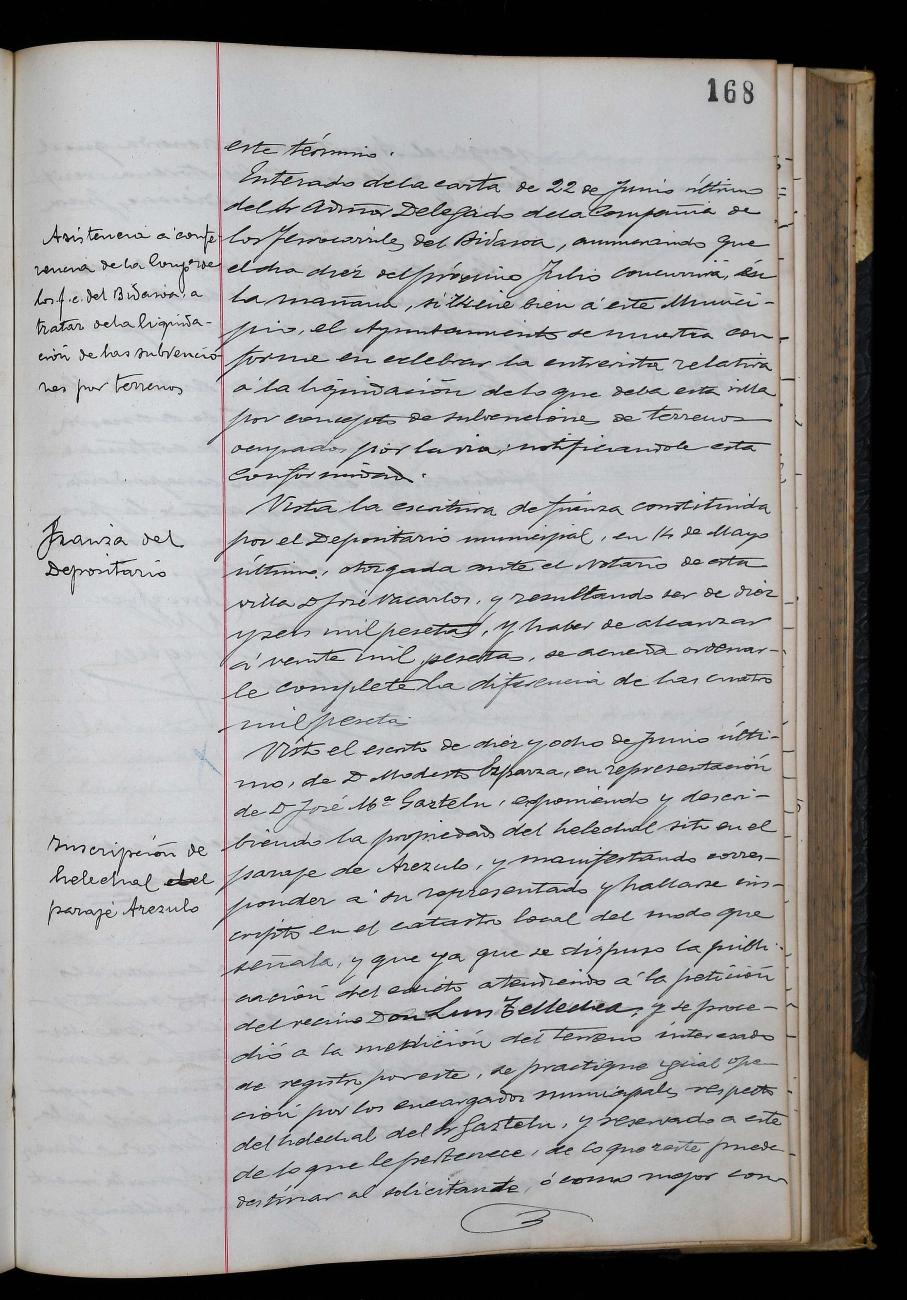 168
este término.
Enterado de la carta de 22 de Junio último
del Sr Admor Delegado de la Compañia de
los Ferrocarriles del Bidasoa, anunciando que
el dia diez del próximo Julio concurrirá, en
la mañana, si tiene bien a este Munici-
pio, el Ayuntamiento se muestra con-
forme en celebrar la entrevista relativa
a la liquidación de lo que deba esta villa
por concepto de subvenciones de terrenos
ocupados por la via; notificandole esta
conformidad.
Asistencia a confe
rencia de la Compª de
los f.c. del Bidasoa, a
tratar de la liquida-
ción de las subvencio
nes por terrenos
Vista la escritura de fianza constituida
por el Depositario municipal, en 14 de Mayo
último, otorgada ante el Notario de esta
villa D José Vacarlos, y resultando ser de diez
y seis mil pesetas, y haber de alcanzar
a veinte mil pesetas, se acuerda ordenar-
le complete la diferencia de las cuatro
mil peseta.
Fianza del
Depositario
Visto el escrito de diez y ocho de Junio últi-
mo, de D Modesto Esparza, en representación
de D José Mª Gaztelu, exponiendo y descri-
biendo la propiedad del helechal sito en el
paraje de Arezulo, y manifestando corres-
ponder a su representado y hallarse ins-
cripto en el catastro local del modo que
señala, y que ya que se dispuso la publi-
cación del edicto atendiendo a la petición
del vecino Don Luis Tellechea, y se proce-
dió a la medición del terreno interesado
de registro por este, se practique igual ope-
ción por los encargados municipales respecto
del helechal del Sr Gaztelu, y reservado a este
de lo que le pertenece, de lo que reste puede
destinar al solicitante, ó como mejor con-
Inscripción de
helechal del
paraje Arezulo